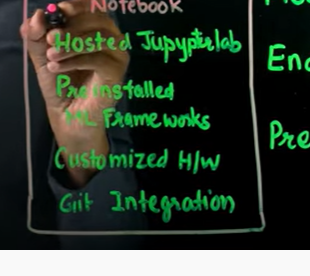 Notebook
Hosted Jupypterlab
Preinstalled
ML Frameworks
Customized H/W
Git Integration
Pre